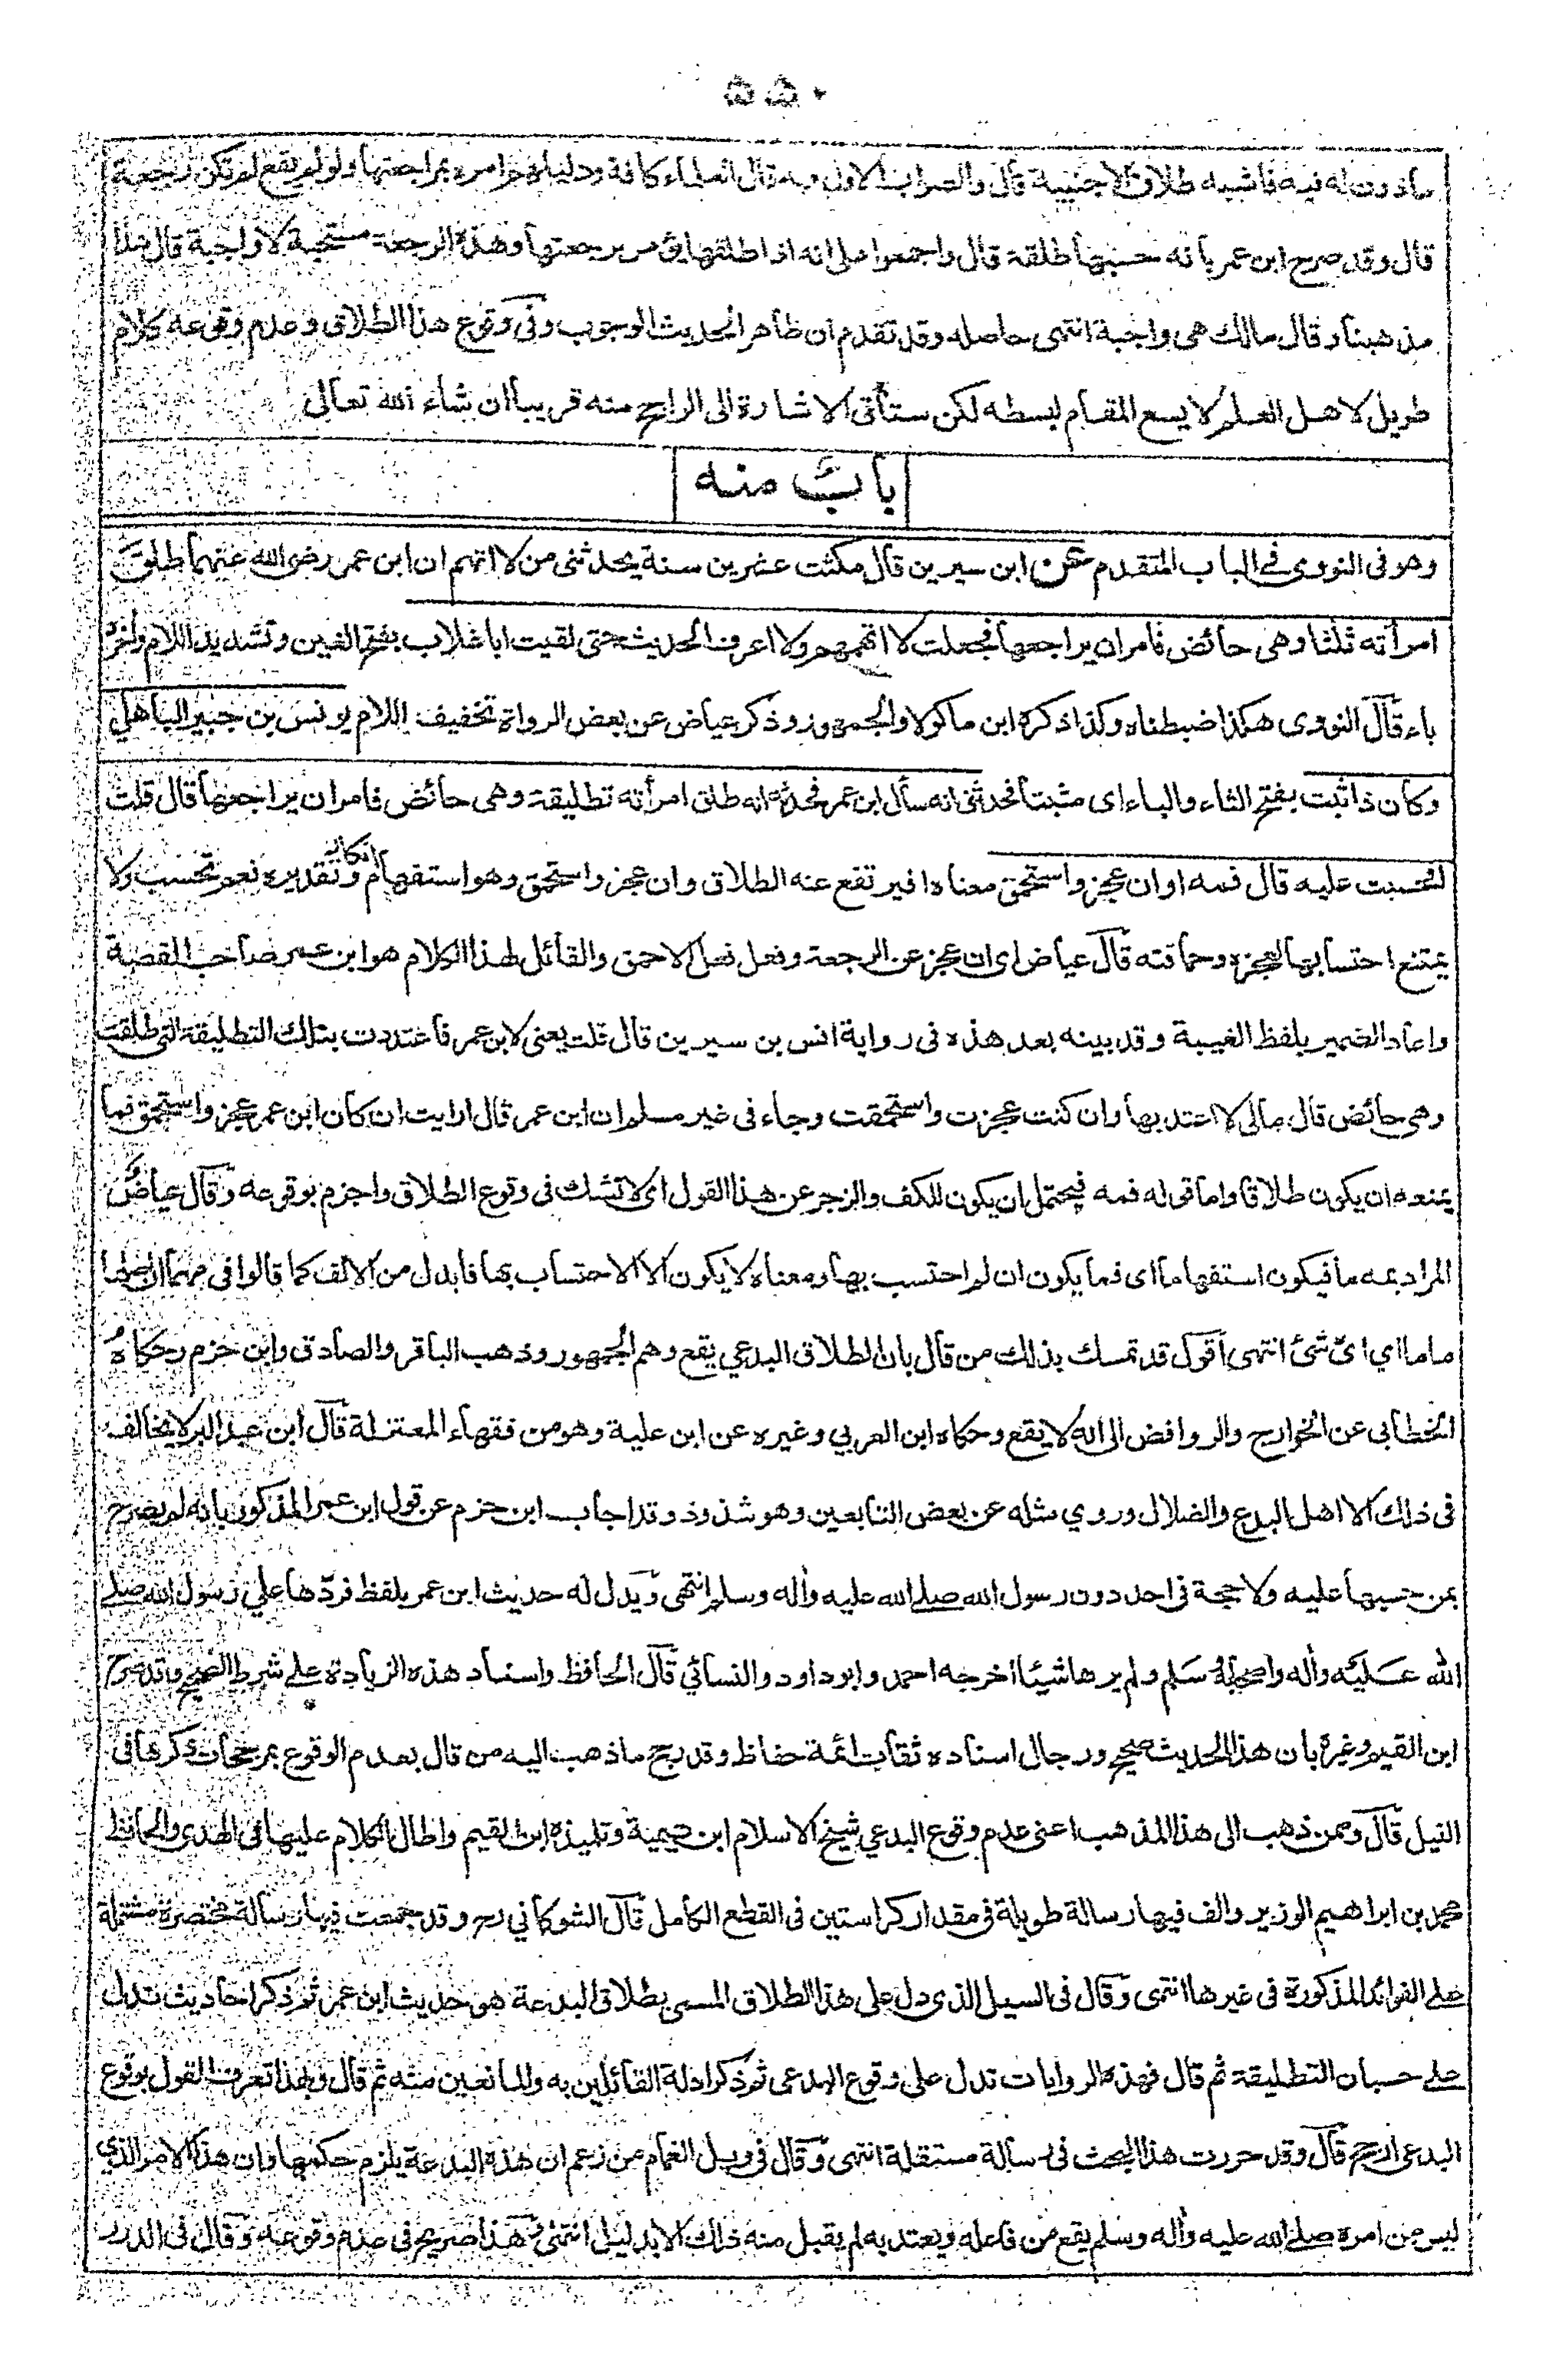 ٥٥٠
مأذون له فيه فأشبه طلاق الاجنبية قال والصواب الاول وبه قال العلماء كافة ودليلهم امره بمراجعتها ولو لم يقع لم تكن رجعة
قال وقد صرح ابن عمر بأنه حسبها طلقة قال واجمعوا على انه اذا طلقها يؤمر برجعتها وهذه الرجعة مستحبة لا واجبة قال هذا
مذهبنا وقال مالك هى واجبة انتهى حاصله وقد تقدم ان ظاهر الحديث الوجوب وفى وقوع هذا الطلاق وعدم وقوعه كلام
طويل لاهل العلم لا يسع المقام لبسطه لكن ستأتى الاشارة الى الراجح منه قريبا ان شاء الله تعالى
باب منه
وهو فى النووى فى الباب المتقدم عن ابن سيرين قال مكثت عشرين سنة يحدثنى من لا اتهم ان ابن عمر رضى الله عنهما طلق
امرأته ثلثا وهى حائض فامر ان يراجعها فجعلت لا اتهمهم ولا اعرف الحديث حتى لقيت ابا غلاب بفتح الغين وتشديد اللام واخره
باء قال النووى هكذا ضبطناه وكذا ذكره ابن ماكولا والجمهور وذكر عياض عن بعض الرواة تخفيف اللام يونس بن جبير الباهلى
وكان ذا ثبت بفتح الثاء والباء اى مثبتا فحدثنى انه سأل ابن عمر فحدثه انه طلق امرأته تطليقة وهى حائض فامر ان يراجعها قال قلت
افحسبت عليه قال فمه او ان عجز واستحمق معناه افيرتفع عنه الطلاق وان عجز واستحمق وهو استفهام انكار وتقديره نعم تحسب ولا
يمتنع احتسابها لعجزه وحماقته قال عياض اى ان عجز عن الرجعة وفعل فعل الاحمق والقائل لهذا الكلام هو ابن عمر صاحب القصة
واعاد الضمير بلفظ الغيبة وقد بينه بعد هذه فى رواية انس بن سيرين قال قلت يعنى لابن عمر فاعتددت بتلك التطليقة التى طلقت
وهى حائض قال مالى لا اعتد بها وان كنت عجزت واستحمقت وجاء فى غير مسلم ان ابن عمر قال ارايت ان كان ابن عمر عجز واستحمق فما
يمنعه ان يكون طلاقا واما قوله فمه فيحتمل ان يكون للكف والزجر عن هذا القول اى لا تشك فى وقوع الطلاق واجزم بوقوعه وقال عياض
المراد بمه ما فيكون استفهاما اى فما يكون ان لم احتسب بها ومعناه لا يكون الا الاحتساب بها فابدل من الالف كما قالوا فى مهما ان اصلها
ماما اي اىّ شئ انتهى اقول قد تمسك بذلك من قال بان الطلاق البدعي يقع وهم الجمهور وذهب الباقر والصادق وابن حزم وحكاه
الخطابى عن الخوارج والروافض الى انه لا يقع وحكاه ابن العربي وغيره عن ابن علية وهو من فقهاء المعتزلة قال ابن عبد البر لا يخالف
فى ذلك الا اهل البدع والضلال وروي مثله عن بعض التابعين وهو شذوذ وقد اجاب ابن حزم عن قول ابن عمر المذكور بانه لم يصرح
بمن حسبها عليه ولا حجة فى احد دون رسول الله صلى الله عليه واٰله وسلم انتهى ويدل له حديث ابن عمر بلفظ فردّها علي رسول الله صلى
الله عليه واٰله واصحابه سلم ولم يرها شيئا اخرجه احمد وابو داود والنسائي قال الحافظ واسناد هذه الزيادة على شرط الصحيح وقد صرح
ابن القيم وغيره بان هذا الحديث صحيح ورجال اسناده ثقات ائمة حفاظ وقد رجح ما ذهب اليه من قال بعدم الوقوع بمرجحات ذكرها فى
النيل قال وممن ذهب الى هذا المذهب اعنى عدم وقوع البدعي شيخ الاسلام ابن تيمية وتلميذه ابن القيم واطال الكلام عليها فى الهدى والحافظ
محمد بن ابراهيم الوزير والف فيها رسالة طويلة فى مقدار كراستين فى القطع الكامل قال الشوكاني رح وقد جمعت فيها رسالة مختصرة مشتملة
على الفوائد المذكورة فى غيرها انتهى وقال فى السيل الذى دل على هذا الطلاق المسمى بطلاق البدعة هو حديث ابن عمر ثم ذكر احاديث تدل
على حسبان التطليقة ثم قال فهذه الروايات تدل على وقوع البدعى ثم ذكر ادلة القائلين به والمانعين منه ثم قال وبهذا تعرف القول بوقوع
البدعى ارجح قال وقد حررت هذا البحث فى رسالة مستقلة انتهى وقال فى وبل الغمام من زعم ان هذه البدعة يلزم حكمها وان هذا الامر الذي
ليس من امره صلى الله عليه واٰله وسلم يقع من فاعله ويعتد به لم يقبل منه ذلك الا بدليل انتهى وهذا صريح فى عدم وقوعه وقال فى الدرر